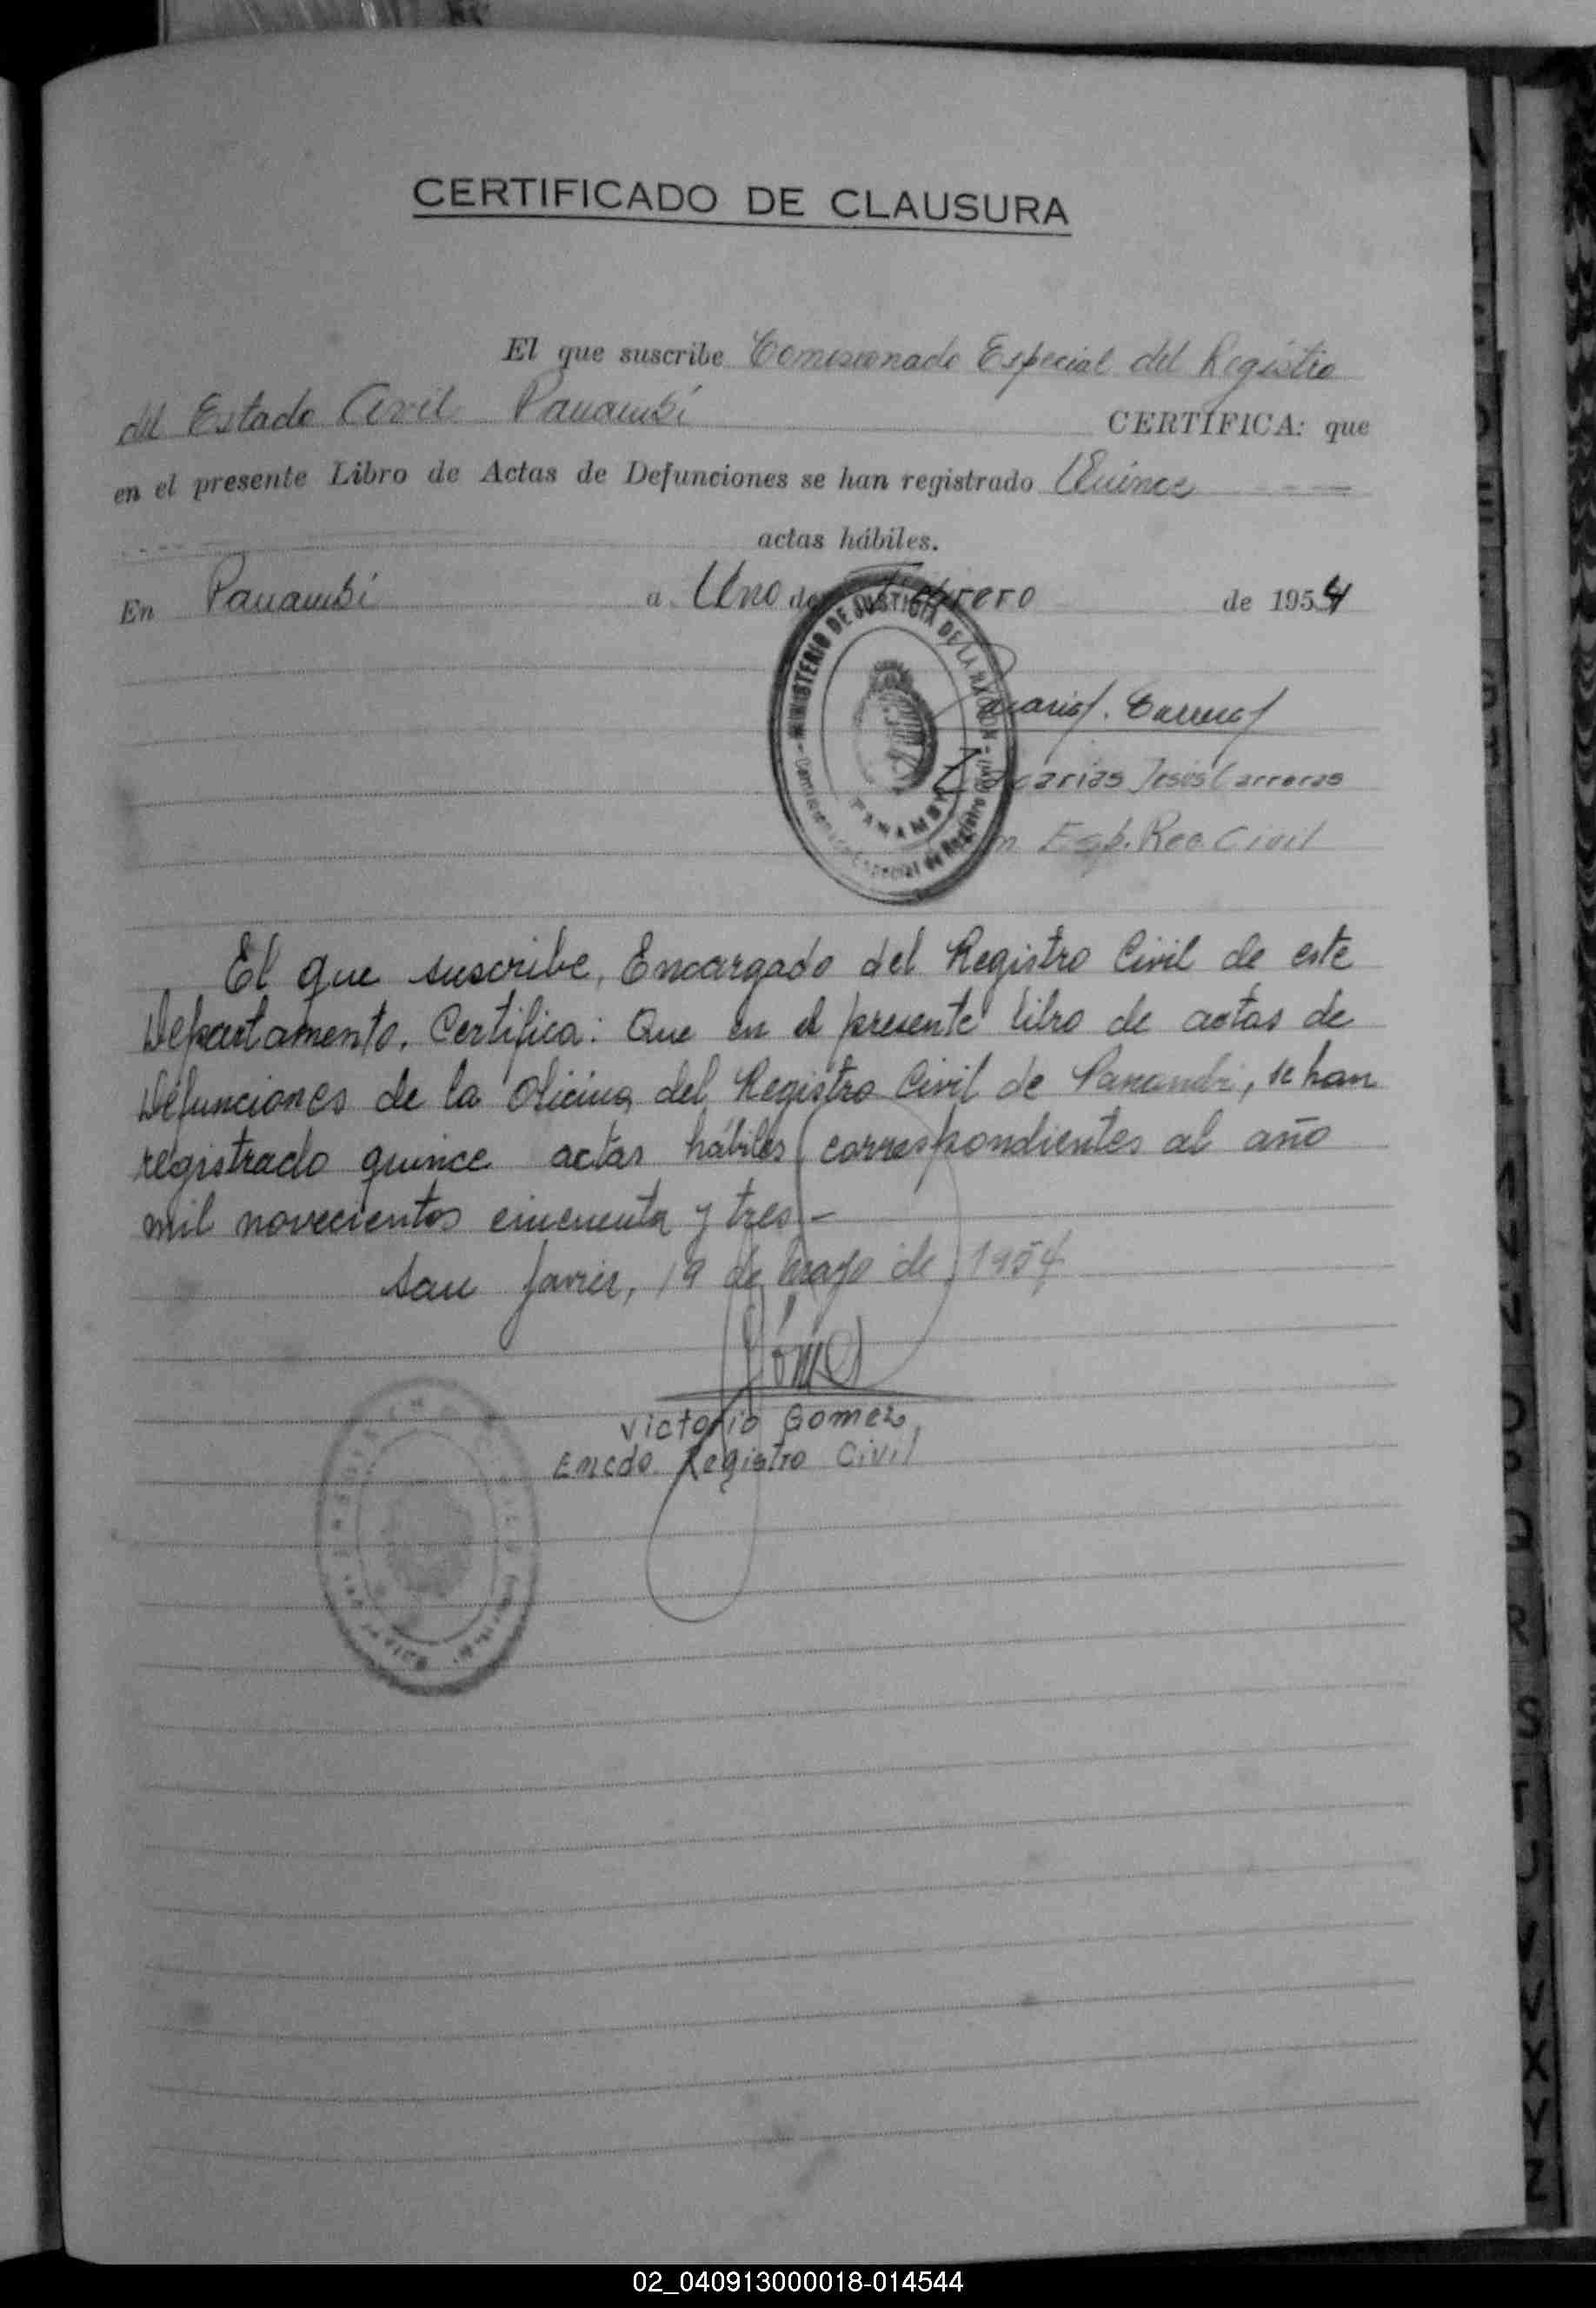 CERTIFICADO DE CLAUSURA
El que suscribe Comisionado Especial del Registro
del Estado Civil Panambí CERTIFICA: que
en el presente Libro de Actas de Defunciones se han registrado Quince
actas hábiles.
En Panambí a Uno de Febrero de 1954
MINISTERIO DE JUSTICIA DE LA NACION
PANAMBI
Especial de Registro Civil
Zacarias Jesús Carreras
Esp. Reg. Civil
El que suscribe, Encargado del Registro Civil de este
Departamento. Certifica: Que en el presente libro de actas de
Defunciones de la Oficina del Registro Civil de Panambi, se han
registrado quince actas hábiles correspondientes al año
mil novecientos cincuenta y tres -
San Javier, 19 de Mayo de 1954
Gómez
Victorio Gomez
Encdo. Registro Civil
R
S
T
U
V
X
Y
Z
02_040913000018-014544